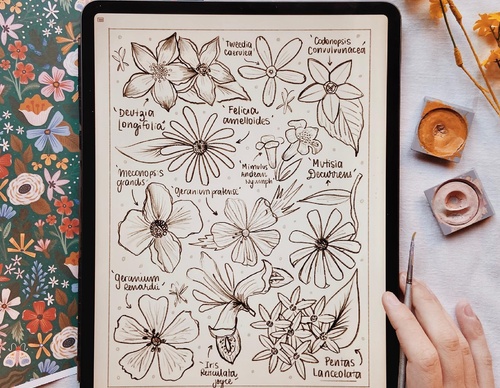 Tweedia
caerulea
Codonopsis
Convulvinacea
'Deutzia
longifolia'
'Felicia
amelloides'
Mimulus
andreas
nymph
'Mutisia
Decurrens'
meconopsis
grandis
'geranium pratense'
'geranium
renardii
Iris
Reticulata
joyce
Pentas
Lanceolata